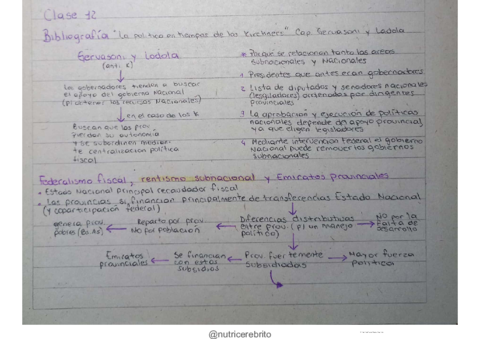 Clase 12
Bibliografía "La política en tiempos de los Kirchners" Cap. Gervasoni y Lodola
Gervasoni y Lodola
(anti. K)
Los gobernadores tienden a buscar
el apoyo del gobierno Nacional
(p/ obtener los recursos Nacionales)
en el caso de los K
Buscan que las prov.
pierdan su autonomía
y se subordinen mediante
te centralización política
fiscal
Porque se relacionan tanto las áreas
subnacionales y Nacionales
1. Presidentes que antes eran gobernadores
2. Lista de diputados y senadores nacionales
(legisladores) ordenadas por dirigentes
provinciales
3. La aprobación y ejecución de políticas
nacionales depende del apoyo provincial,
ya que eligen legisladores
4. Mediante intervención Federal el gobierno
Nacional puede remover los gobiernos
subnacionales
Federalismo fiscal, rentismo subnacional y Emiratos provinciales
Estado Nacional principal recaudador fiscal
Las provincias se financian principalmente de transferencias Estado Nacional
(y coparticipación federal)
genera prov. pobres (Bs. As) Reparto por prov. No por población Diferencias distributivas entre prov. (p/ un manejo político) NO por la falta de desarrollo
Emiratos provinciales Se financian con estos subsidios Prov. fuertemente subsidiadas Mayor fuerza política
@nutricerebrito